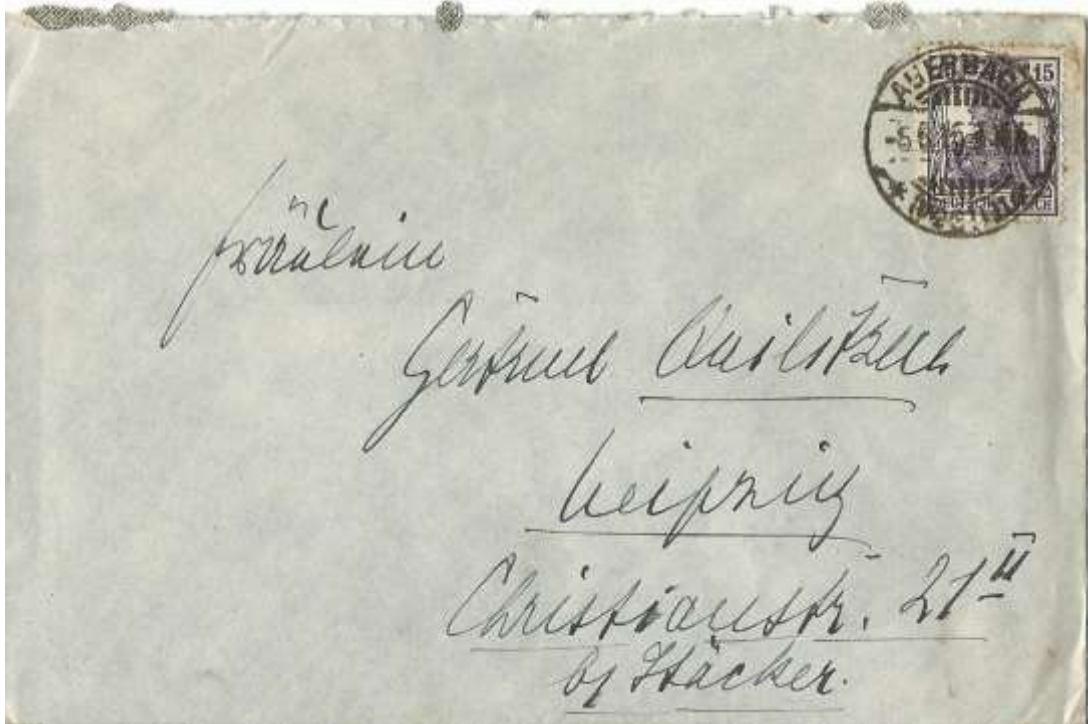 AUERBACH
15
Fräulein
Gertrud
Leipzig
Christianstr. 21 II
b/ Häcker.